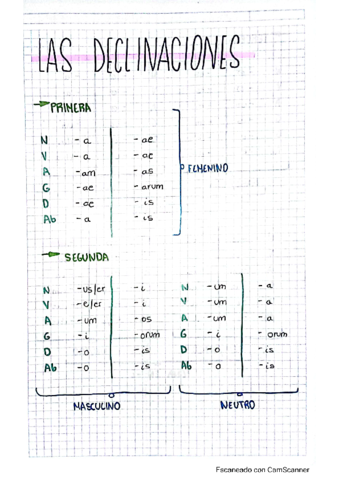 LAS DECLINACIONES
PRIMERA
N -a -ae
V -a -ae
A -am -as
G -ae -arum
D -ae -is
Ab -a -is
FEMENINO
SEGUNDA
N -us/er -i
V -e/er -i
A -um -os
G -i -orum
D -o -is
Ab -o -is
MASCULINO
N -um -a
V -um -a
A -um -a
G -i -orum
D -o -is
Ab -o -is
NEUTRO
Escaneado con CamScanner